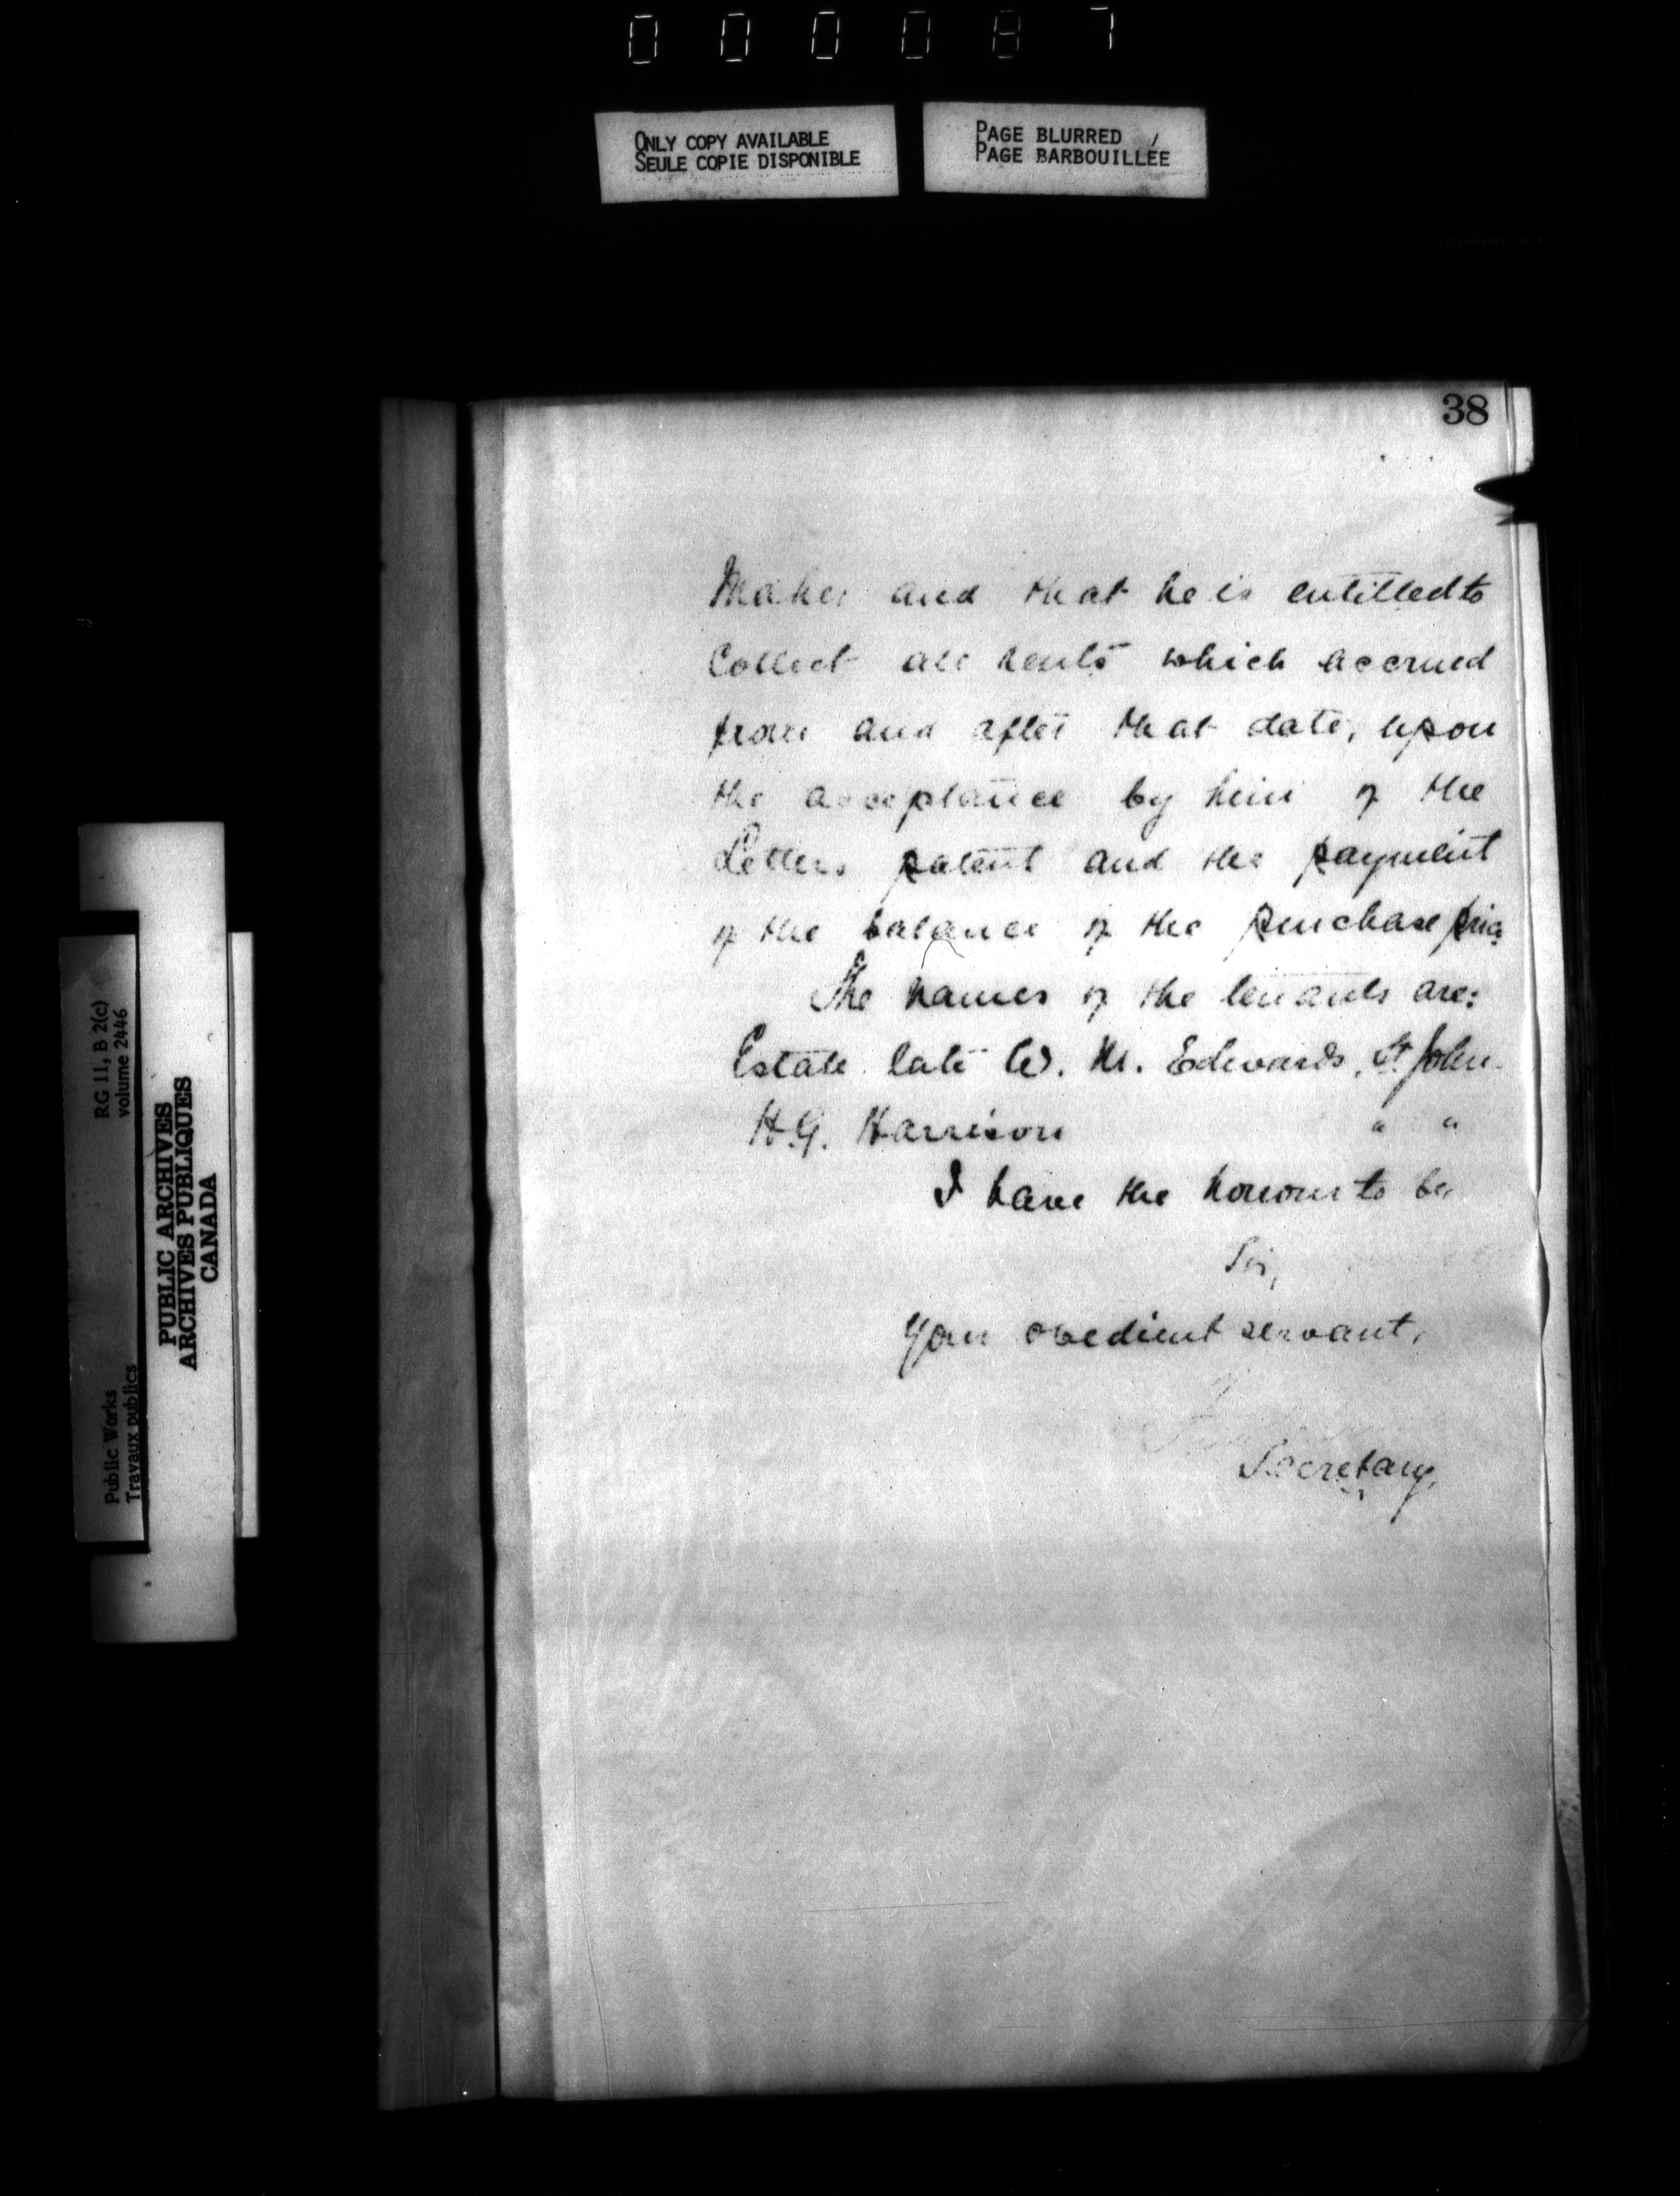 000087
ONLY COPY AVAILABLE
SEULE COPIE DISPONIBLE
PAGE BLURRED
PAGE BARBOUILLÉE
38
Maher and that he is entitled to
Collect all rents which accrued
from and after that date, upon
the acceptance by him of the
Letters patent and the payment
of the balance of the purchase price
The names of the tenants are:
Estate late W. M. Edwards, St John
H.G. Harrison " "
I have the honour to be
Sir,
Your obedient servant,
Secretary.
RG 11, B 2(c)
volume 2446
Public Works
Travaux publics
PUBLIC ARCHIVES
ARCHIVES PUBLIQUES
CANADA